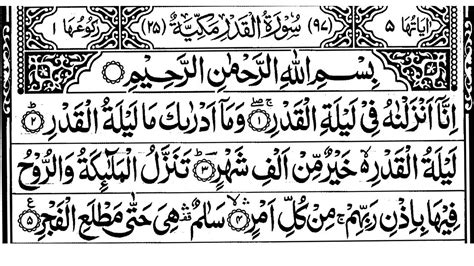 اٰيَاتُهَا ٥ (٩٧) سُوْرَةُ الْقَدْرِ مَكِّيَّةٌ (٢٥) رُكُوْعُهَا ١
بِسْمِ اللّٰهِ الرَّحْمٰنِ الرَّحِيْمِ
اِنَّاۤ اَنْزَلْنٰهُ فِيْ لَيْلَةِ الْقَدْرِ ۚۖ ﴿١﴾ وَمَاۤ اَدْرٰىكَ مَا لَيْلَةُ الْقَدْرِ ؕ ﴿٢﴾
لَيْلَةُ الْقَدْرِ ۙ خَيْرٌ مِّنْ اَلْفِ شَهْرٍ ؕ ﴿٣﴾ تَنَزَّلُ الْمَلٰٓئِكَةُ وَالرُّوْحُ
فِيْهَا بِاِذْنِ رَبِّهِمْ ۚ مِنْ كُلِّ اَمْرٍ ۙۛ ﴿٤﴾ سَلٰمٌ ۛ هِيَ حَتّٰى مَطْلَعِ الْفَجْرِ ﴿٥﴾ ع